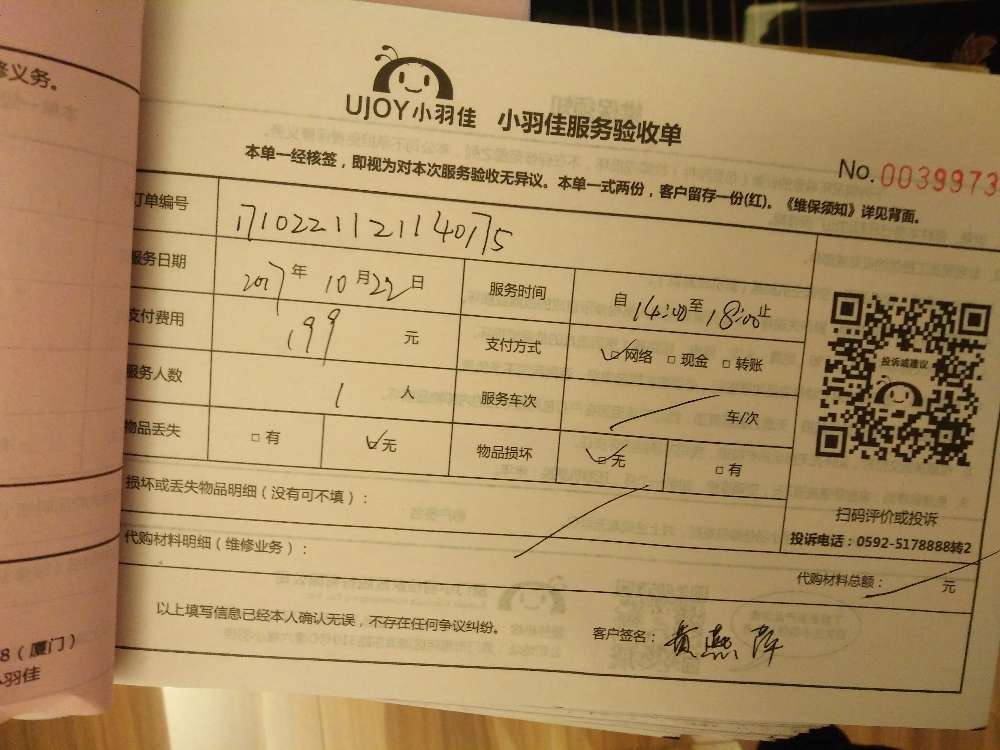 修义务。
UJOY小羽佳 小羽佳服务验收单
No.0039973
本单一经核签，即视为对本次服务验收无异议。本单一式两份，客户留存一份(红)。《维保须知》详见背面。
订单编号 1710221121140175
服务日期 2017年10月22日 服务时间 自14:00至18:00止
支付费用 199 元 支付方式 ☑网络 □现金 □转账
服务人数 1 人 服务车次 车/次
物品丢失 □有 ☑无 物品损坏 ☑无 □有
投诉或建议
扫码评价或投诉
投诉电话：0592-5178888转2
损坏或丢失物品明细（没有可不填）：
代购材料明细（维修业务）：
代购材料总额： 元
以上填写信息已经本人确认无误，不存在任何争议纠纷。
客户签名：黄燕萍
8（厦门）
小羽佳